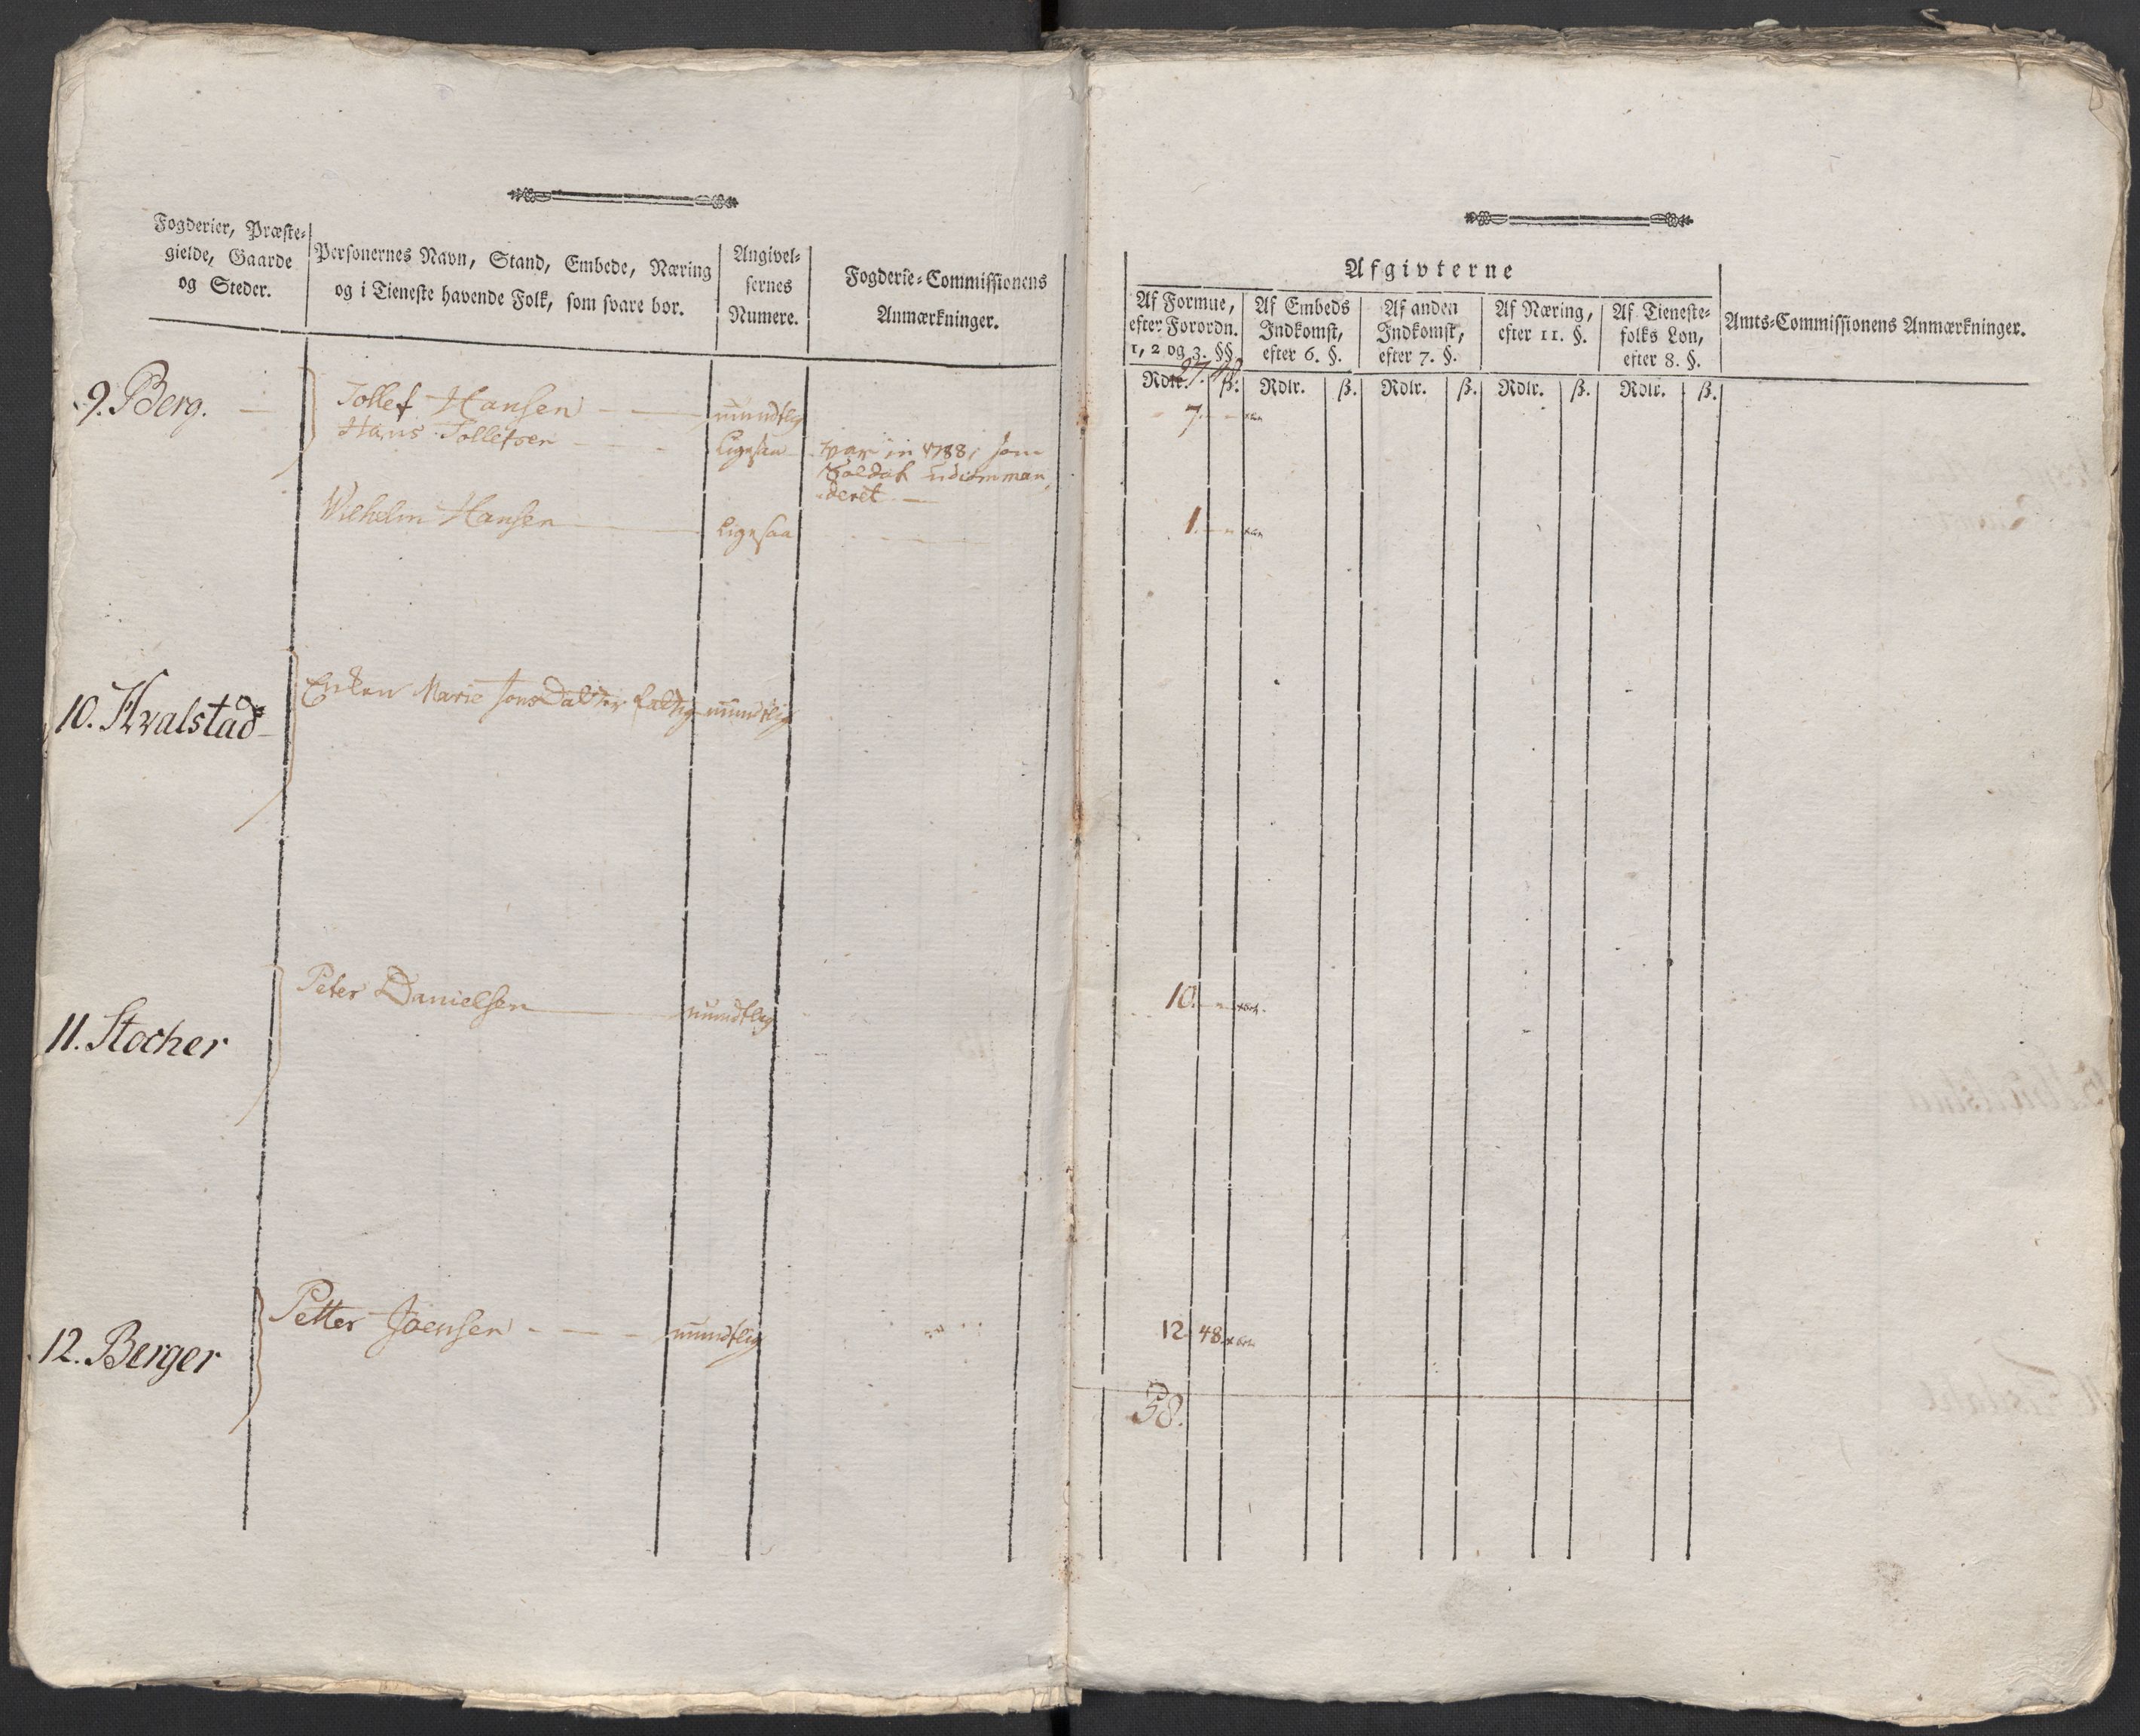 Fogderier, Præste-
gielde, Gaarde
og Steder.
Personernes Navn, Stand, Embede, Næring
og i Tieneste havende Folk, som svare bør.
Angivel-
sernes
Numere.
Fogderie-Commissionens
Anmærkninger.
9. Berg.
Tollef Hansen mundtlig
Hans Tollefsen Ligesaa
var in 1788, som
Soldat udcomman
deret
Wilhelm Hansen Ligesaa
10. Hvalstad
Enken Marie Jonsdatter fattig mundtlig
11. Stocher
Peter Danielsen mundtlig
12. Berger
Petter Joensen mundtlig
Afgivterne
Af Formue,
efter Forordn.
1, 2 og 3. §§.
Af Embeds
Indkomst,
efter 6. §.
Af anden
Indkomst,
efter 7. §.
Af Næring,
efter 11. §.
Af Tieneste-
folks Løn,
efter 8. §.
Amts-Commissionens Anmærkninger.
Rdlr. ß. Rdlr. ß. Rdlr. ß. Rdlr. ß. Rdlr. ß.
27. 48
7.
1.
10.
12. 48.
58.